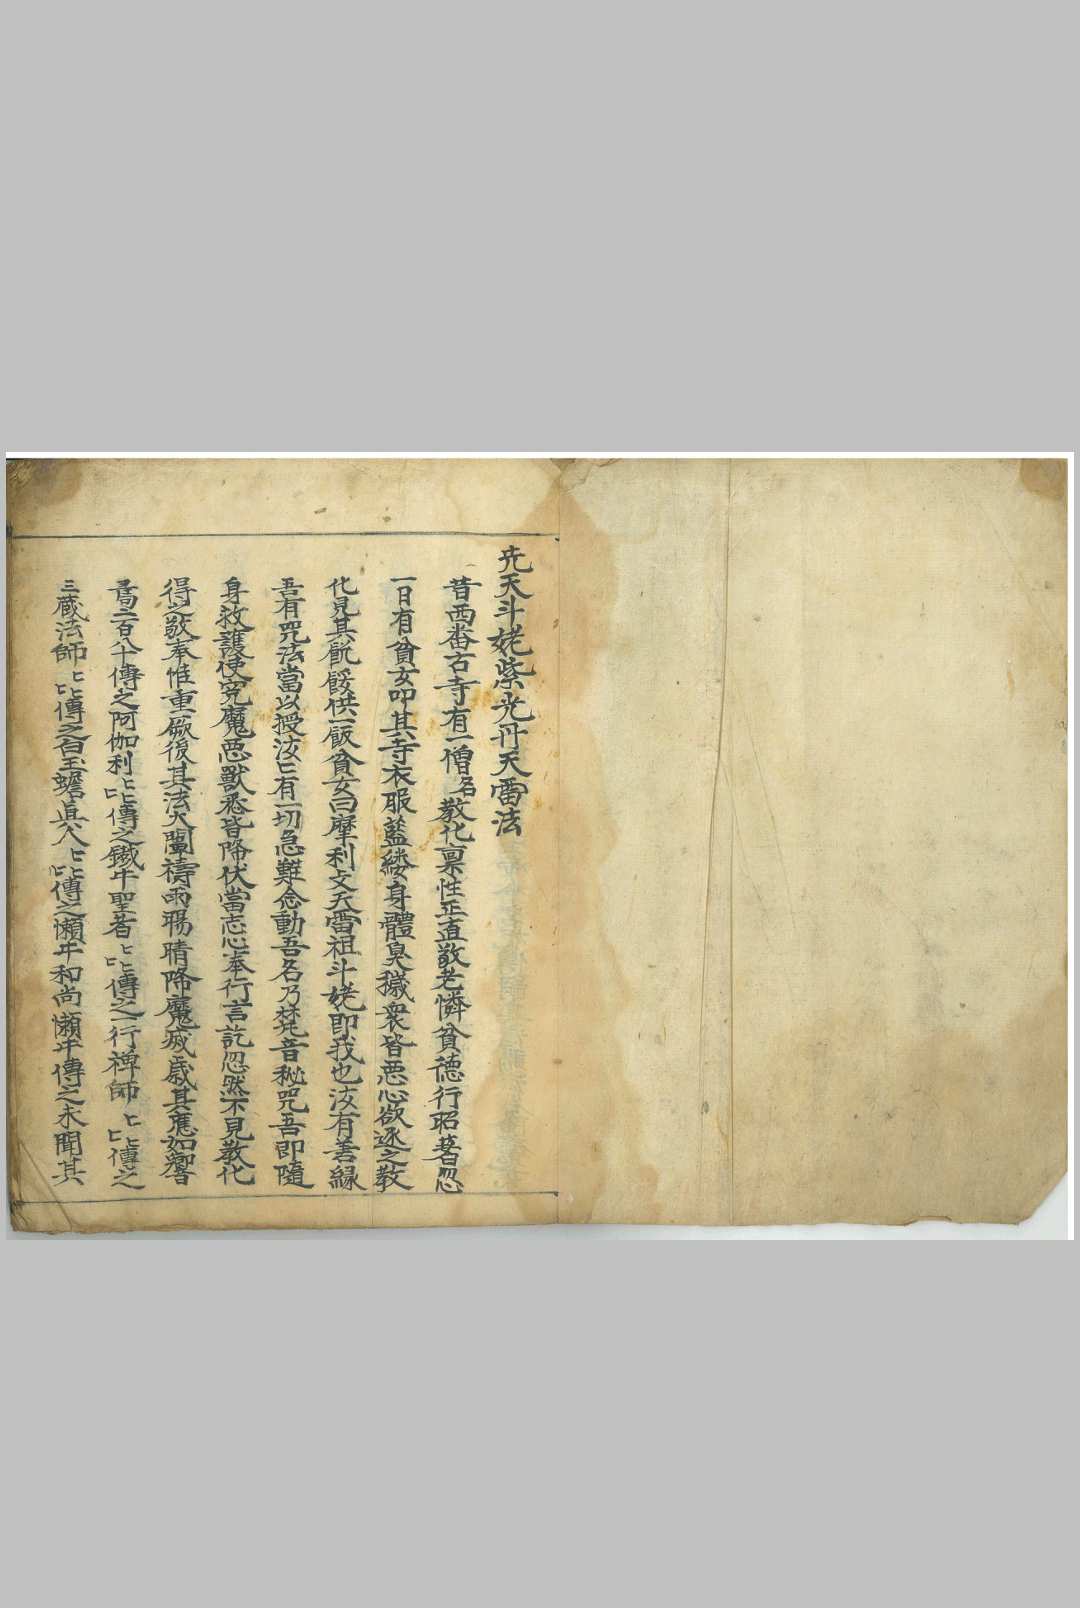 先天斗姥紫光丹天雷法
昔西番古寺有一僧名教化禀性正直敬老憐貧德行昭著忽
一日有貧女叩其寺衣服藍縷身體臭穢衆皆恶心欲逐之教
化見其飢餒供一飯貧女曰摩利攴天雷祖斗姥即我也汝有善緣
吾有咒法當以授汝匕有一切急難念動吾名乃梵音秘咒吾即隨
身救護使究魔恶獸悉皆降伏當志心奉行言訖忽然不見教化
得之敬奉惟重厥後其法大闡禱雨暘晴降魔殄歲其應如響
焉二百八十傳之阿伽利匕匕匕傳之鐵牛聖者匕匕匕傳之一行禅師匕匕匕傳之
三蔵法師匕匕匕傳之白玉蟾眞人匕匕匕傳之懶牛和尚懶牛傳之未聞其